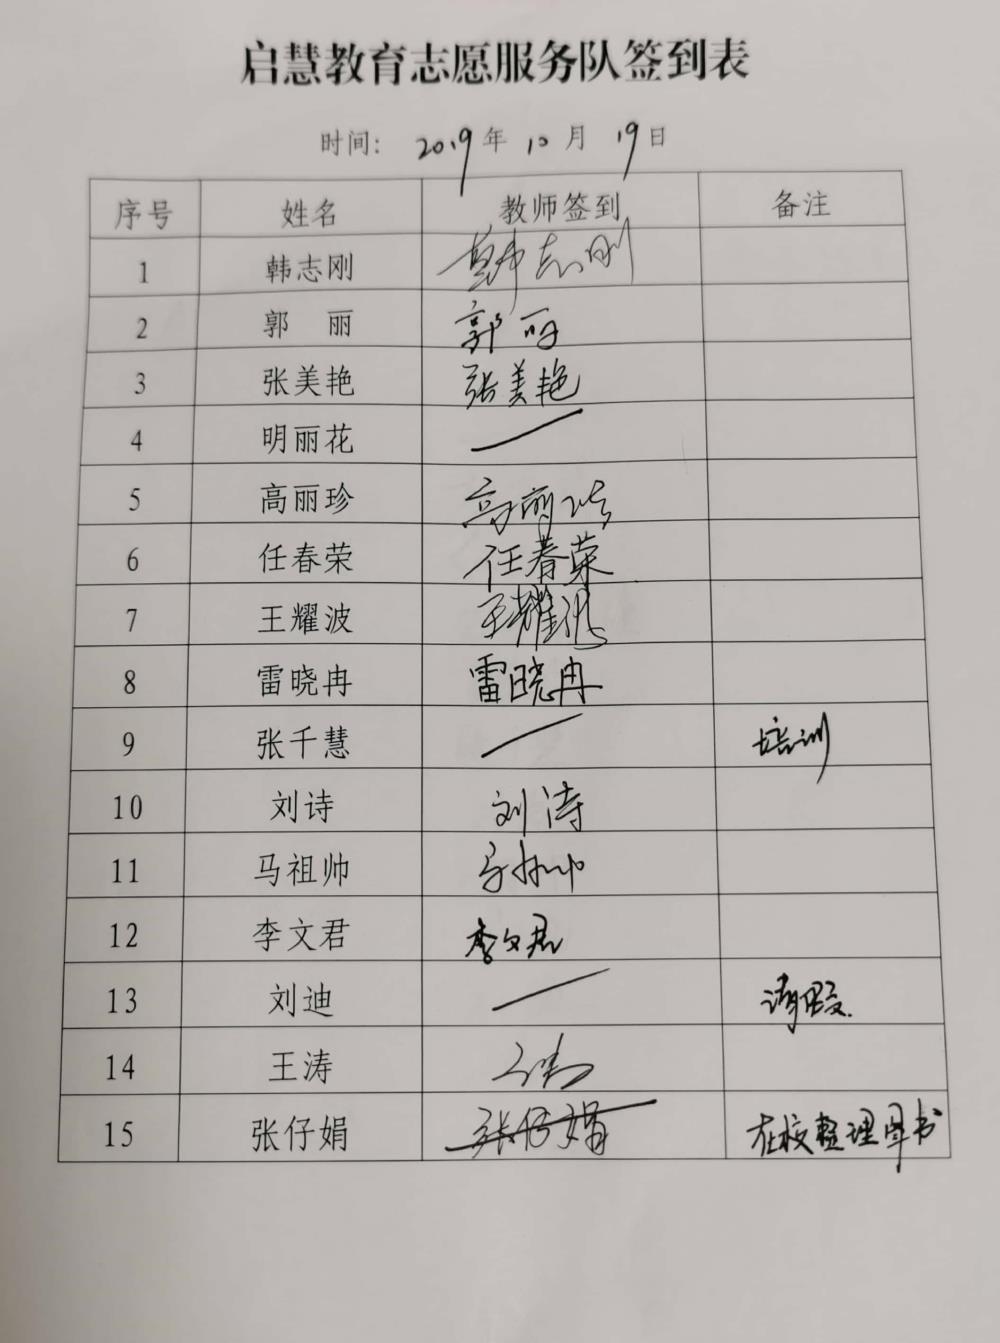 启慧教育志愿服务队签到表
时间： 2019 年 10 月 19 日
序号 姓名 教师签到 备注
1 韩志刚 韩志刚
2 郭 丽 郭丽
3 张美艳 张美艳
4 明丽花
5 高丽珍 高丽珍
6 任春荣 任春荣
7 王耀波 王耀波
8 雷晓冉 雷晓冉
9 张千慧 培训
10 刘诗 刘诗
11 马祖帅 马祖帅
12 李文君 李文君
13 刘迪 请假
14 王涛 王涛
15 张仔娟 张仔娟 在校整理图书